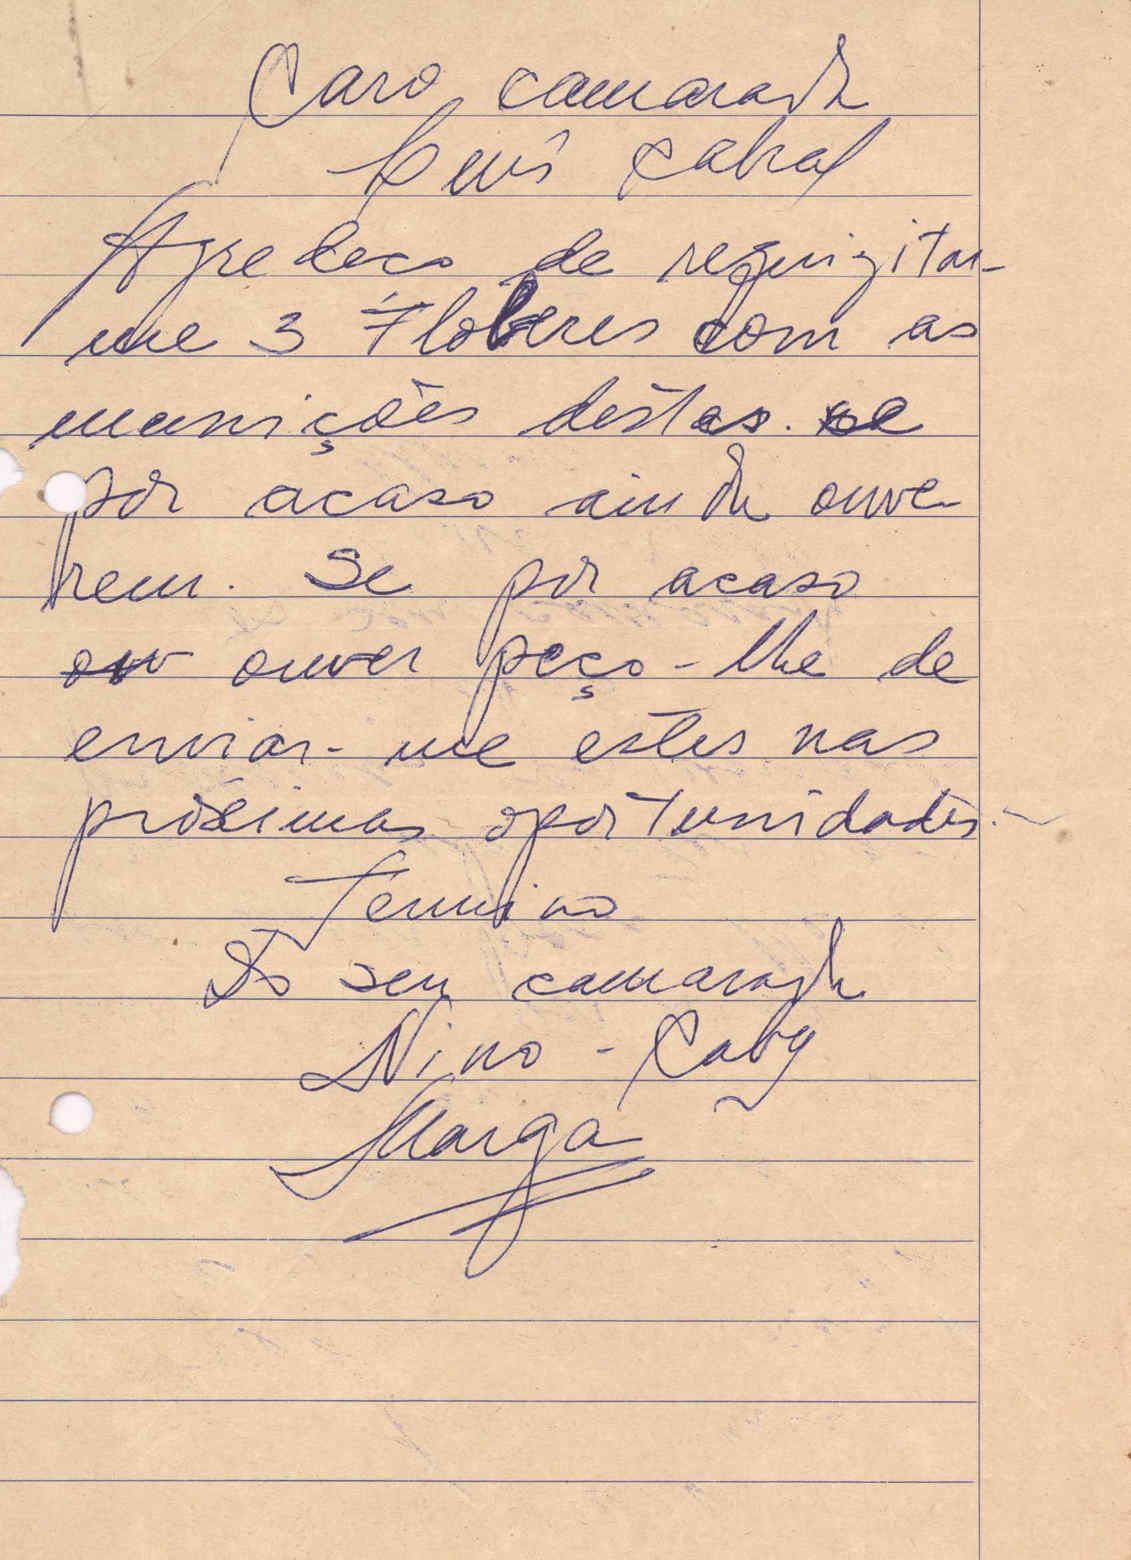 Caro camarada
Luis Cabral
Agredeco de requizitar-
me 3 Floberes com as
munições destas. se
por acaso ainda ouve-
rem. Se por acaso
ouver peço-lhe de
enviar-me estes nas
próximas oportunidades.
Termino
Do seu camarada
Nino - Caby
Marga